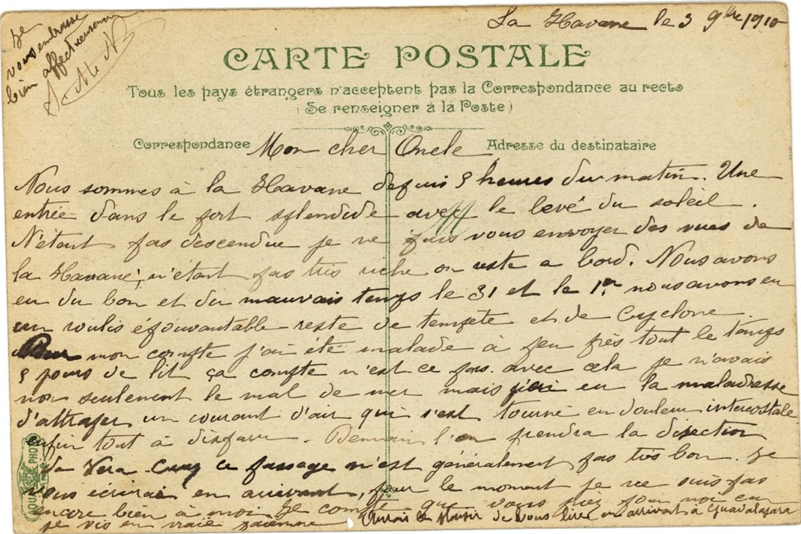 La Havane le 3 9bre 1910
je
vous embrasse
bien affectueusement
M. N
CARTE POSTALE
Tous les pays étrangers n'acceptent pas la Correspondance au recto
(Se renseigner à la Poste)
Correspondance Mon cher Oncle Adresse du destinataire
Nous sommes à la Havane depuis 5 heures du matin. Une
entrée dans le port splendide avec le levé du soleil.
N'étant pas descendue je ne puis vous envoyer des vues de
la Havane; n'étant pas très riche on reste a bord. Nous avons
eu du bon et du mauvais temps le 31 et le 1er nous avons eu
un roulis épouvantable reste de tempete et de Cyclone.
Pour mon compte j'ai été malade à peu près tout le temps
5 jours de lit ça compte n'est ce pas. avec cela je n'avais
non seulement le mal de mer mais j'ai eu la maladresse
d'attraper un courant d'air qui s'est tourné en douleur intercostale
enfin tout à disparu. Demain l'on prendra la direction
da Vera Cruz ce passage n'est généralement pas très bon. Je
vous écrirai en arrivant, pour le moment je ne suis pas
encore bien à moi. Je compte que vous pour moi car
je vis en vraie
Aurais le plaisir de vous lire en arrivant à Guadalajara